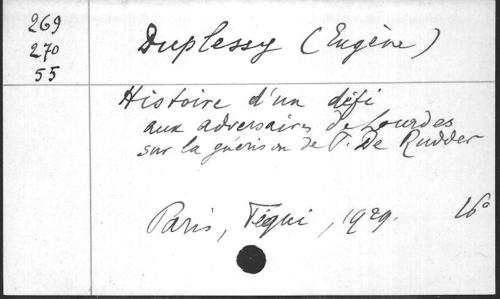 269
270
55
Duplessy (Eugène)
Histoire d'un défi
aux adversaires de Lourdes
sur la guérison de P. De Rudder
Paris, Téqui, 1929. 16°